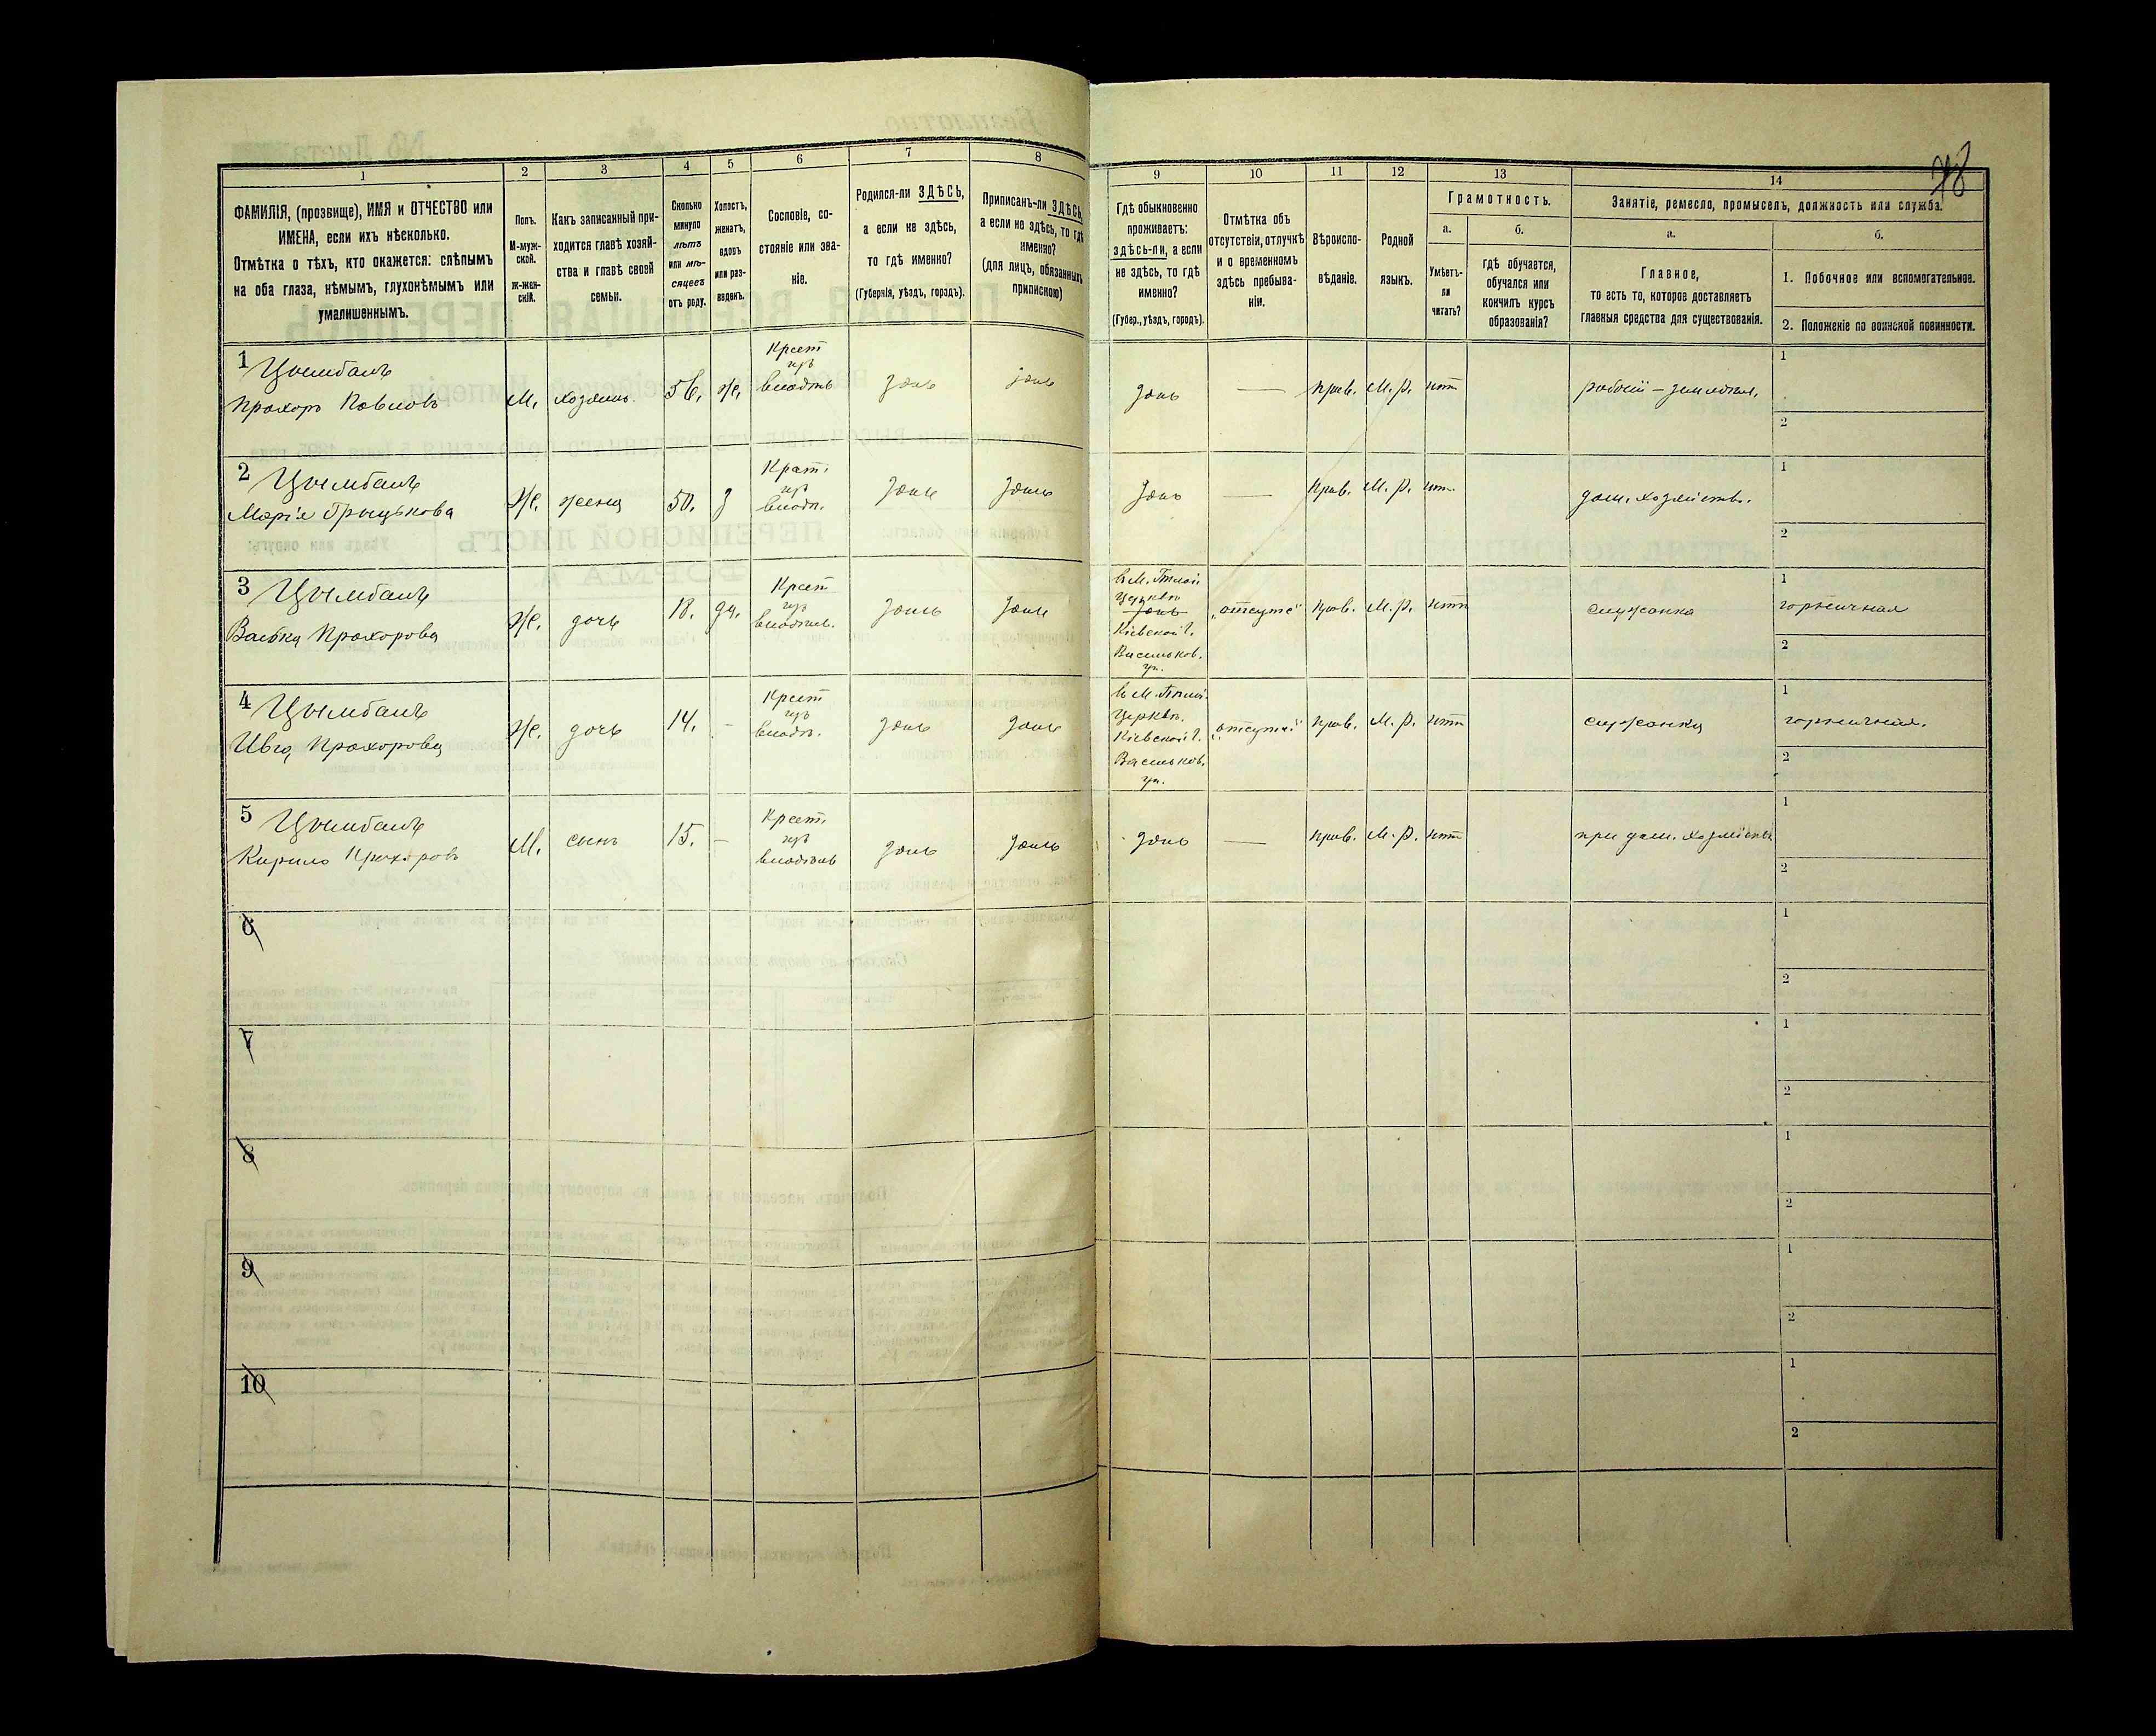 1
ФАМИЛІЯ, (прозвище), ИМЯ и ОТЧЕСТВО или
ИМЕНА, если ихъ нѣсколько.
Отмѣтка о тѣхъ, кто окажется: слѣпымъ
на оба глаза, нѣмымъ, глухонѣмымъ или
умалишеннымъ.
2
Полъ.
М-муж-
ской.
ж-жен-
скій.
3
Какъ записанный при-
ходится главѣ хозяй-
ства и главѣ своей
семьи.
4
Сколько
минуло
лѣтъ
или мѣ-
сяцевъ
отъ роду.
5
Холостъ,
женатъ,
вдовъ
или раз-
веденъ.
6
Сословіе, со-
стояніе или зва-
ніе.
7
Родился-ли ЗДѢСЬ,
а если не здѣсь,
то гдѣ именно?
(Губернія, уѣздъ, городъ).
8
Приписанъ-ли ЗДѢСЬ,
а если не здѣсь, то гдѣ
именно?
(для лицъ, обязанныхъ
припискою)
9
Гдѣ обыкновенно
проживаетъ:
здѣсь-ли, а если
не здѣсь, то гдѣ
именно?
(Губер., уѣздъ, городъ).
10
Отмѣтка объ
отсутствіи, отлучкѣ
и о временномъ
здѣсь пребыва-
ніи.
11
Вѣроиспо-
вѣданіе.
12
Родной
языкъ.
13
Грамотность.
а.
Умѣетъ-
ли
читать?
б.
гдѣ обучается,
обучался или
кончилъ курсъ
образованія?
14
Занятіе, ремесло, промыселъ, должность или служба.
а.
Главное,
то есть то, которое доставляетъ
главныя средства для существованія.
б.
1. Побочное или вспомогательное.
2. Положеніе по воинской повинности.
1 Цымбалъ
Прохоръ Павловъ
М.
хозяинъ.
56.
ж.
Крест
изъ
владѣль
здѣсь
здѣсь
здѣсь
—
прав.
М. р.
нѣт
рабочій — земледѣл.
1
2
2 Цымбалъ
Марія Грыцькова
Ж.
жена
50.
з
Крест.
изъ
владѣл.
здѣсь
здѣсь
здѣсь
—
прав.
М. р.
нѣт.
дом. хозяйств.
1
2
3 Цымбалъ
Прохорова
Ж.
дочь
18.
дч.
Крест
изъ
владѣль.
здѣсь
здѣсь
въ М. Бѣлой
Церквѣ
здѣсь
Кіевской г.
Васильков.
уѣ.
„отсутс“
прав.
М. р.
нѣтъ
служанка
1
горничная
2
4 Цымбалъ
Ивга Прохорова
Ж.
дочь
14.
-
Крест
изъ
владѣл.
здѣсь
здѣсь
въ М. Бѣлой
Церквѣ.
Кіевской г.
Васильков.
уѣ.
„отсутс“
прав.
М. р.
нѣтъ
служанка
1
горничная.
2
5 Цымбалъ
Кирило Прохоровъ
М.
сынъ
15.
-
Крест.
изъ
владѣль
здѣсь
здѣсь
здѣсь
—
прав.
М. р.
нѣт
при дом. хозяйствѣ
1
2
6
1
2
7
1
2
8
1
2
9
1
2
10
1
2